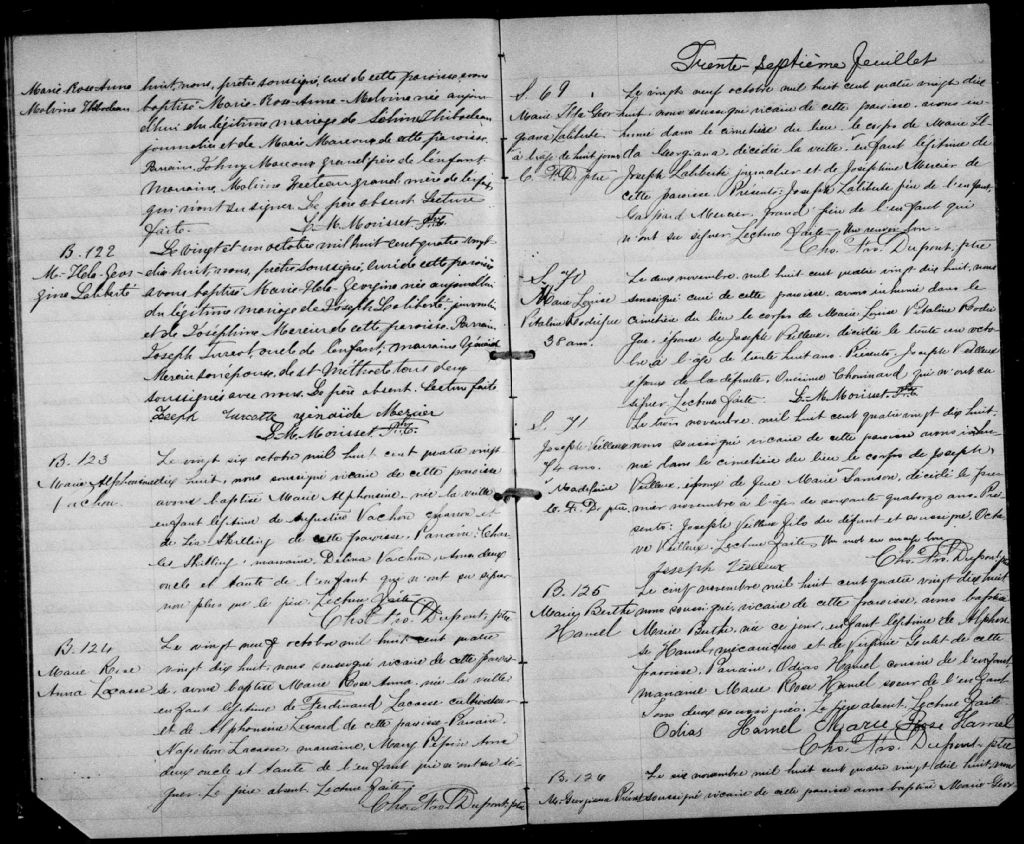 Marie-Rose-Anna
Malvina Thibodeau
huit, nous, prêtre soussigné, curé de cette paroisse, avons
baptisé Marie-Rose-Anna-Malvina née aujour
d'hui du légitime mariage de Thibodeau
journalier et de Marie Marcoux de cette paroisse.
Parrain Johny Marcoux grand'père de l'enfant
marraine grand'mère de l'enfant
qui n'ont su signer. Le père absent. Lecture
faite. L. M. Morisset Ptre
B. 122
M- Geor
gina Laliberté
Le vingt et un octobre mil huit cent quatre vingt
dix huit, nous, prêtre soussigné, curé de cette paroisse
avons baptisé Marie Georgina née aujourd'hui
du légitime mariage de Joseph Laliberté, journalier
et de Joséphine Mercier de cette paroisse. Parrain
Joseph Turcot, oncle de l'enfant, marraine Zénaïde
Mercier son épouse, de St Méthode tous deux
soussignés avec nous. Le père absent. Lecture faite
Joseph Turcotte Zénaïde Mercier
L. M. Morisset Ptre
B. 123
Marie Alphonsine
Vachon
Le vingt six octobre mil huit cent quatre vingt
dix huit, nous soussigné vicaire de cette paroisse
avons baptisé Marie Alphonsine, née la veille
enfant légitime de Vachon et
de Skilling de cette paroisse. Parrain, Char
les Skilling, marraine, Delina Vachon,
oncle et tante de l'enfant qui n'ont su signer
non plus que le père. Lecture faite
Chs. Frs. Dupont, ptre
B. 124
Marie Rose
Anna Lacasse
Le vingt neuf octobre mil huit cent quatre
vingt dix huit, nous soussigné vicaire de cette parois
se, avons baptisé Marie Rose Anna, née la veille
enfant légitime de Ferdinand Lacasse cultivateur
et de Alphonsine de cette paroisse. Parrain,
Napoléon Lacasse, marraine, Mary Pépin
oncle et tante de l'enfant qui n'ont su si
gner. Le père absent. Lecture faite
Chs. Frs. Dupont, ptre
Trente-septième feuillet
S. 69
Marie Geor
giana Laliberté
à l'age de huit jours
C. F. D. ptre
Le vingt neuf octobre mil huit cent quatre vingt dix
huit, nous soussigné vicaire de cette paroisse, avons in
humé dans le cimetière du lieu, le corps de Marie
Georgiana, décédée la veille, enfant légitime de
Joseph Laliberté journalier et de Joséphine Mercier de
cette paroisse. Présents: Joseph Laliberté père de l'enfant,
Mercier, grand' père de l'enfant qui
n'ont su signer. Lecture faite. Un renvoi bon.
Chs. Frs. Dupont, ptre
S. 70
Marie Louise
Vitaline Rodrigue
38 ans.
Le deux novembre, mil huit cent quatre vingt dix huit, nous
soussigné curé de cette paroisse, avons inhumé dans le
cimetière du lieu le corps de Marie Louise Vitaline Rodri
gue, épouse de Joseph Veilleux, décédée le trente un octo
bre à l'âge de trente huit ans. Présents, Joseph Veilleux
époux de la défunte, Onésime Chouinard qui n'ont su
signer. Lecture faite L. M. Morisset Ptre
S. 71
Joseph Veilleux
74 ans.
C. F. D. ptre
Le trois novembre, mil huit cent quatre vingt dix huit,
nous soussigné vicaire de cette paroisse avons inhu
mé dans le cimetière du lieu le corps de Joseph
Veilleux, époux de feue Marie Samson, décédé le pre
mier novembre à l'âge de soixante quatorze ans. Pré
sents: Joseph Veilleux fils du défunt et soussigné, Octa
ve Veilleux. Lecture faite. Un mot en marge bon
Joseph Vielleux Chs. Frs. Dupont, ptre
B. 125
Marie Berthe
Hamel
Le cinq novembre mil huit cent quatre vingt dix huit
nous soussigné, vicaire de cette paroisse, avons baptisé
Marie Berthe, née ce jour, enfant légitime de Alphon
se Hamel, mécanicien et de Virginie Goulet de cette
paroisse, Parrain, Odias Hamel cousin de l'enfant
marraine Marie Rose Hamel soeur de l'enfant
tous deux soussignés. Le père absent. Lecture faite
Odias Hamel Marie Rose Hamel
Chs. Frs. Dupont, ptre
B. 126
M. Georgiana
Le six novembre mil huit cent quatre vingt dix huit, nous
soussigné vicaire de cette paroisse avons baptisé Marie Geor